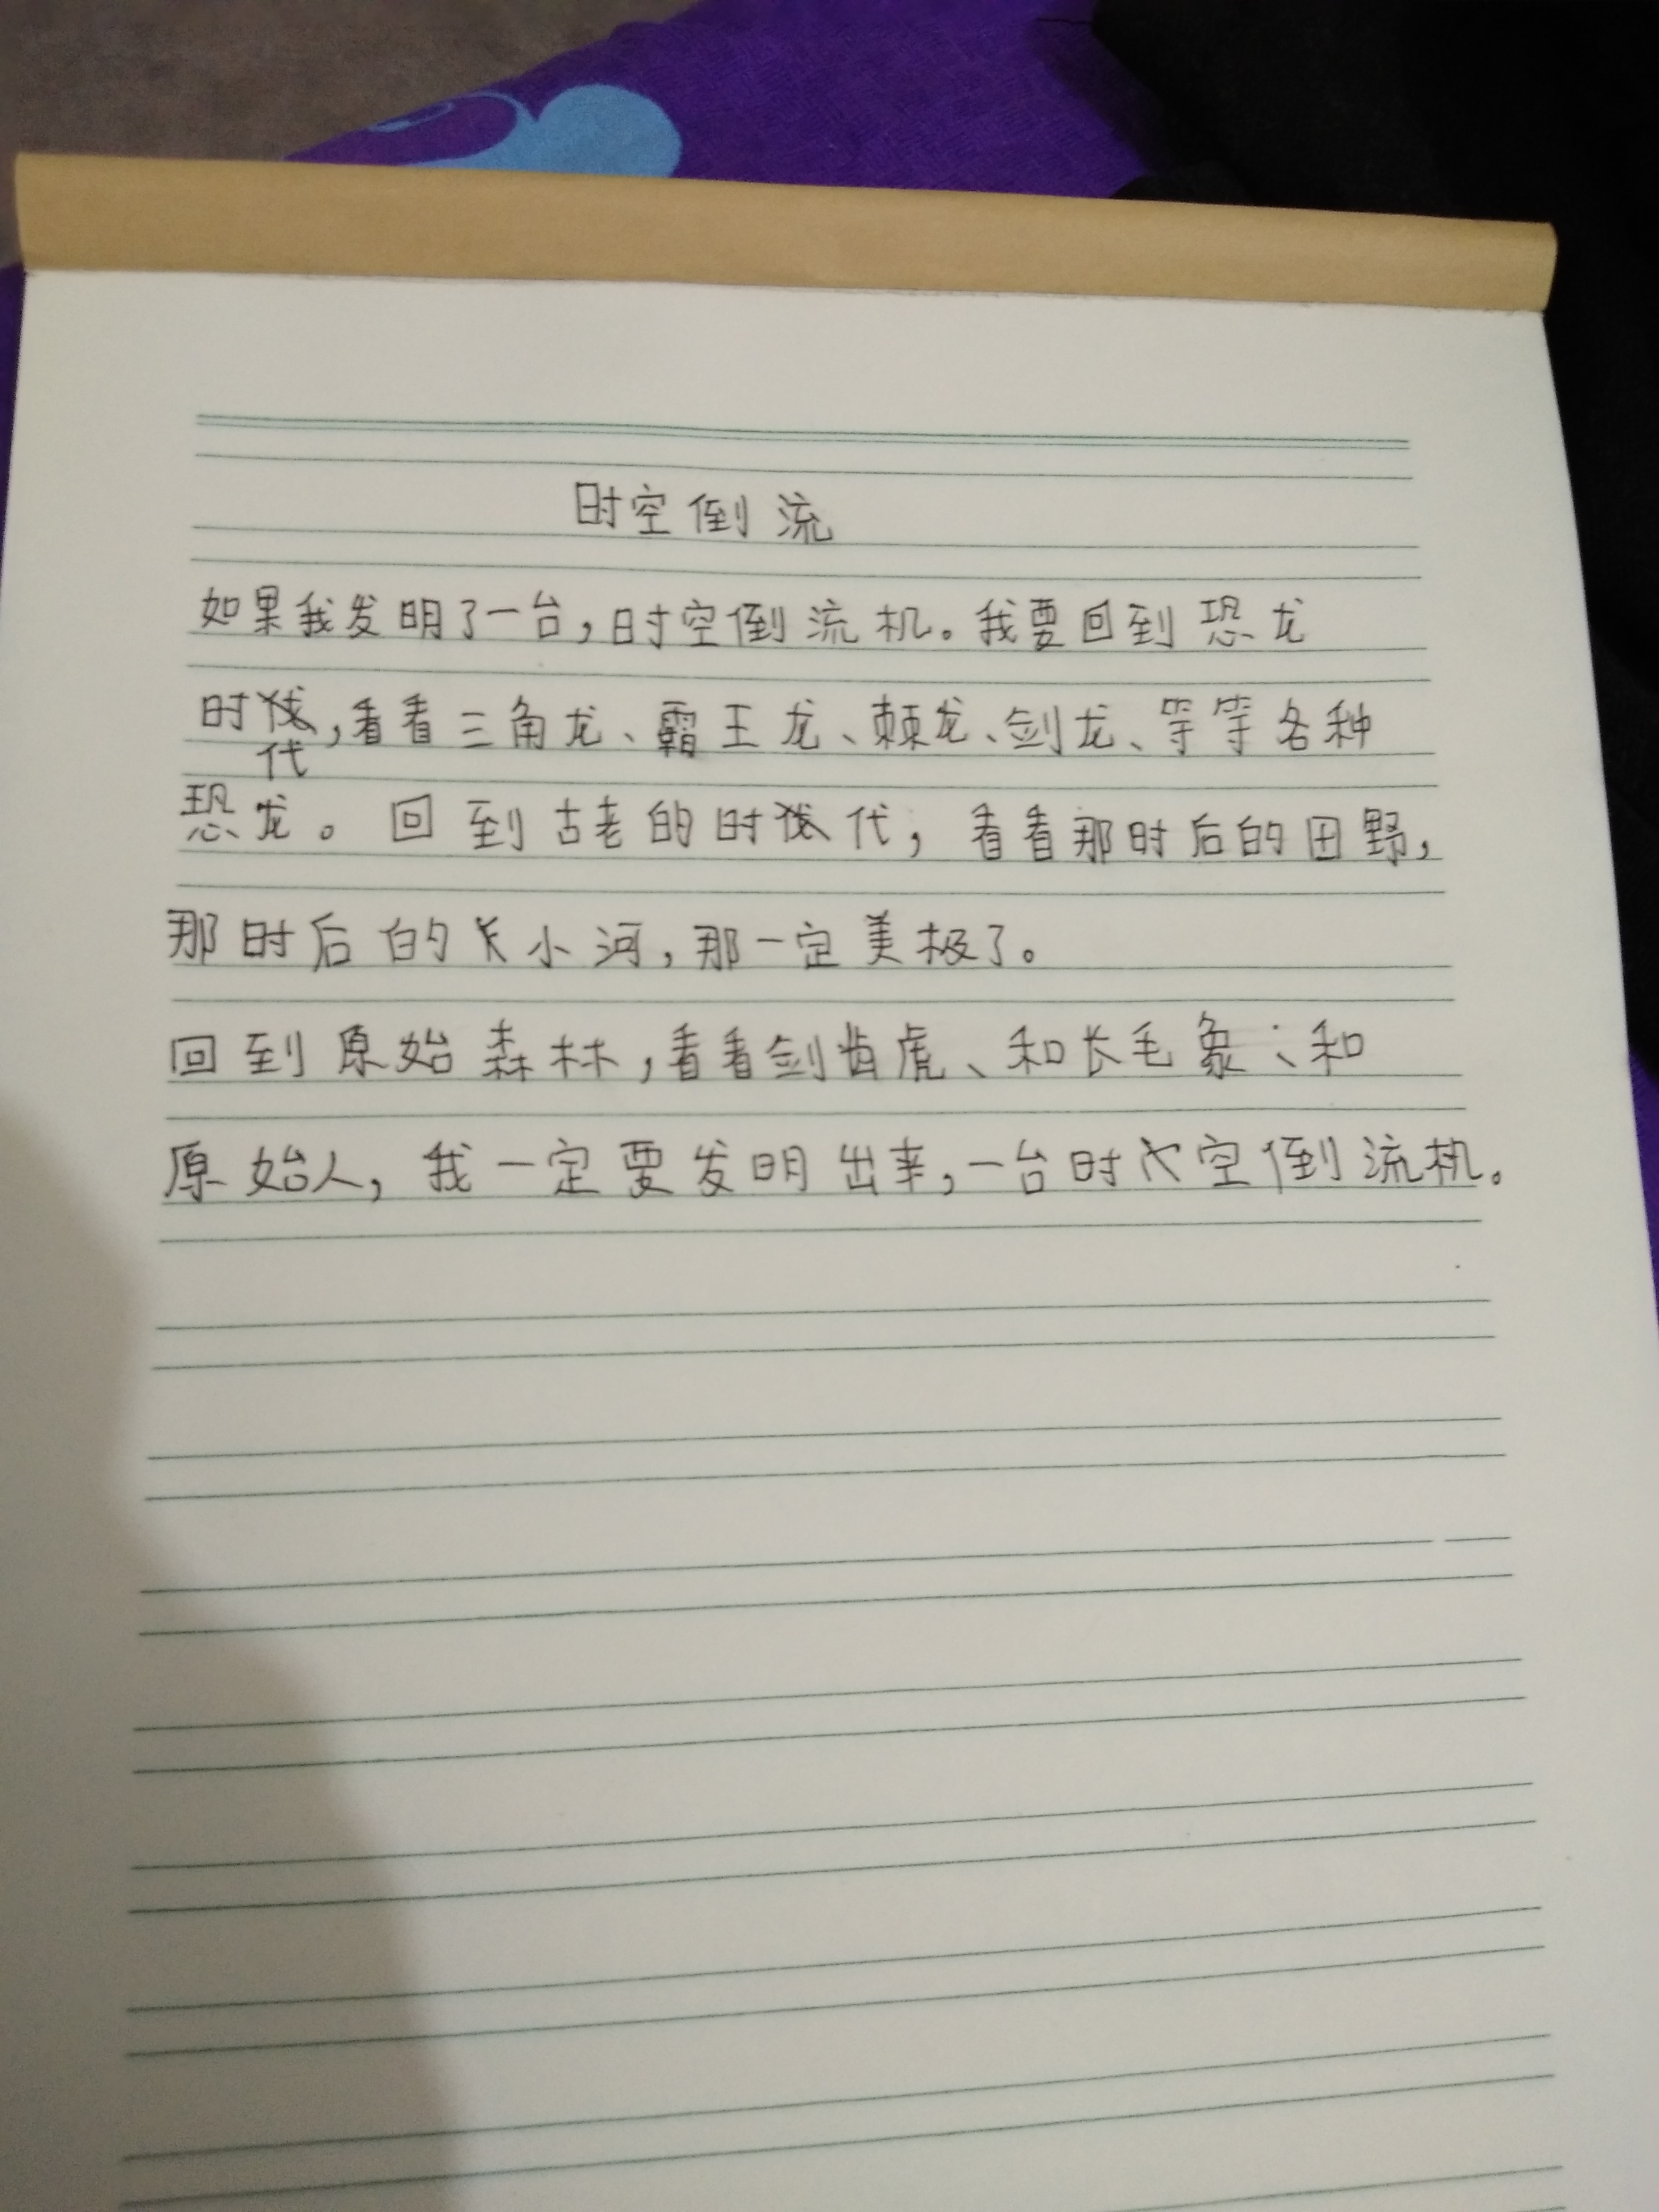 时空倒流
如果我发明了一台,时空倒流机。我要回到恐龙
时代,看看三角龙、霸王龙、棘龙、剑龙、等等各种
恐龙。回到古老的时代,看看那时后的田野,
那时后的小河,那一定美极了。
回到原始森林,看看剑齿虎、和长毛象、和
原始人,我一定要发明出来,一台时空倒流机。